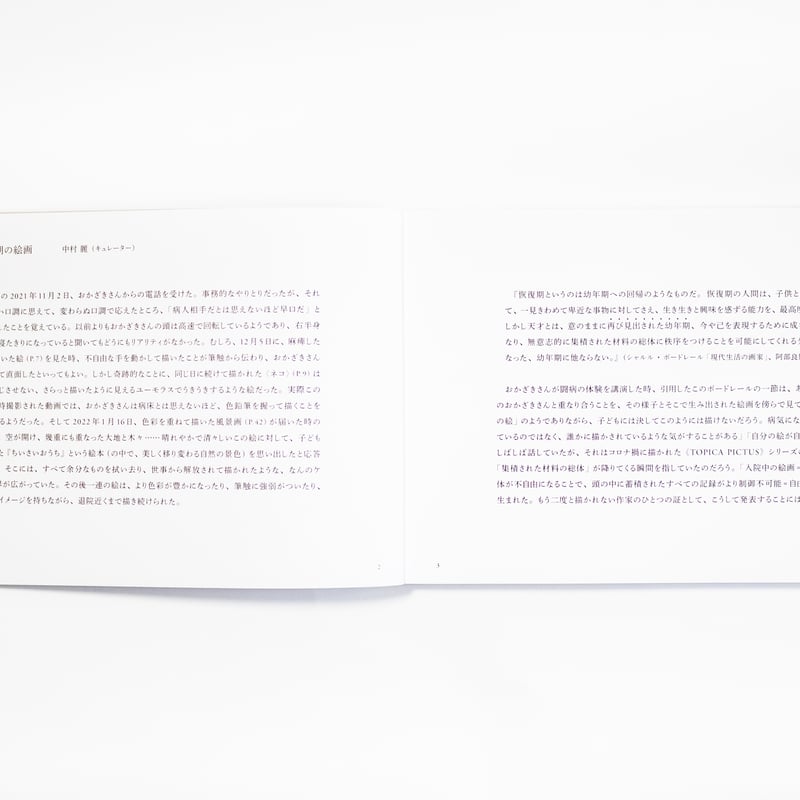 期の絵画　中村 麗（キュレーター）
の2021年11月2日、おかざきさんからの電話を受けた。事務的なやりとりだったが、それ
い口調に思えて、変わらぬ口調で応えたところ、「病人相手だとは思えないほど早口だ」と
したことを覚えている。以前よりもおかざきさんの頭は高速で回転しているようであり、右半身
寝たきりになっていると聞いてもどうにもリアリティがなかった。むしろ、12月5日に、麻痺した
いた絵(P.7)を見た時、不自由な手を動かして描いたことが筆触から伝わり、おかざきさん
て直面したといってもよい。しかし奇跡的なことに、同じ日に続けて描かれた〈ネコ〉(P.9)は
じさせない、さらっと描いたように見えるユーモラスでうきうきするような絵だった。実際この
時撮影された動画では、おかざきさんは病床とは思えないほど、色鉛筆を握って描くことを
るようだった。そして2022年1月16日、色彩を重ねて描いた風景画(P.42)が届いた時の
空が開け、幾重にも重なった大地と木々……晴れやかで清々しいこの絵に対して、子ども
た『ちいさいおうち』という絵本(の中で、美しく移り変わる自然の景色)を思い出したと応答
そこには、すべて余分なものを拭い去り、世事から解放されて描かれたような、なんのケ
界が広がっていた。その後一連の絵は、より色彩が豊かになったり、筆触に強弱がついたり、
イメージを持ちながら、退院近くまで描き続けられた。
2
「恢復期というのは幼年期への回帰のようなものだ。恢復期の人間は、子供と
て、一見きわめて卑近な事物に対してさえ、生き生きと興味を惑ずる能力を、最高度
しかし天才とは、意のままに再び見出された幼年期、今や己を表現するために成
なり、無意志的に集積された材料の総体に秩序をつけることを可能にしてくれる
なった、幼年期に他ならない。』（シャルル・ボードレール「現代生活の画家」、阿部良
おかざきさんが闘病の体験を講演した時、引用したこのボードレールの一節は、
のおかざきさんと重なり合うことを、その様子とそこで生み出された絵画を傍らで見て
の絵」のようでありながら、子どもには決してこのようには描けないだろう。病気にな
ているのではなく、誰かに描かされているような気がすることがある」「自分の絵が自
しばしば話していたが、それはコロナ禍に描かれた〈TOPICA PICTUS〉シリーズの
「集積された材料の総体」が降りてくる瞬間を指していたのだろう。「入院中の絵画
体が不自由になることで、頭の中に蓄積されたすべての記録がより制御不可能＝自由
生まれた。もう二度と描かれない作家のひとつの証として、こうして発表することには
3